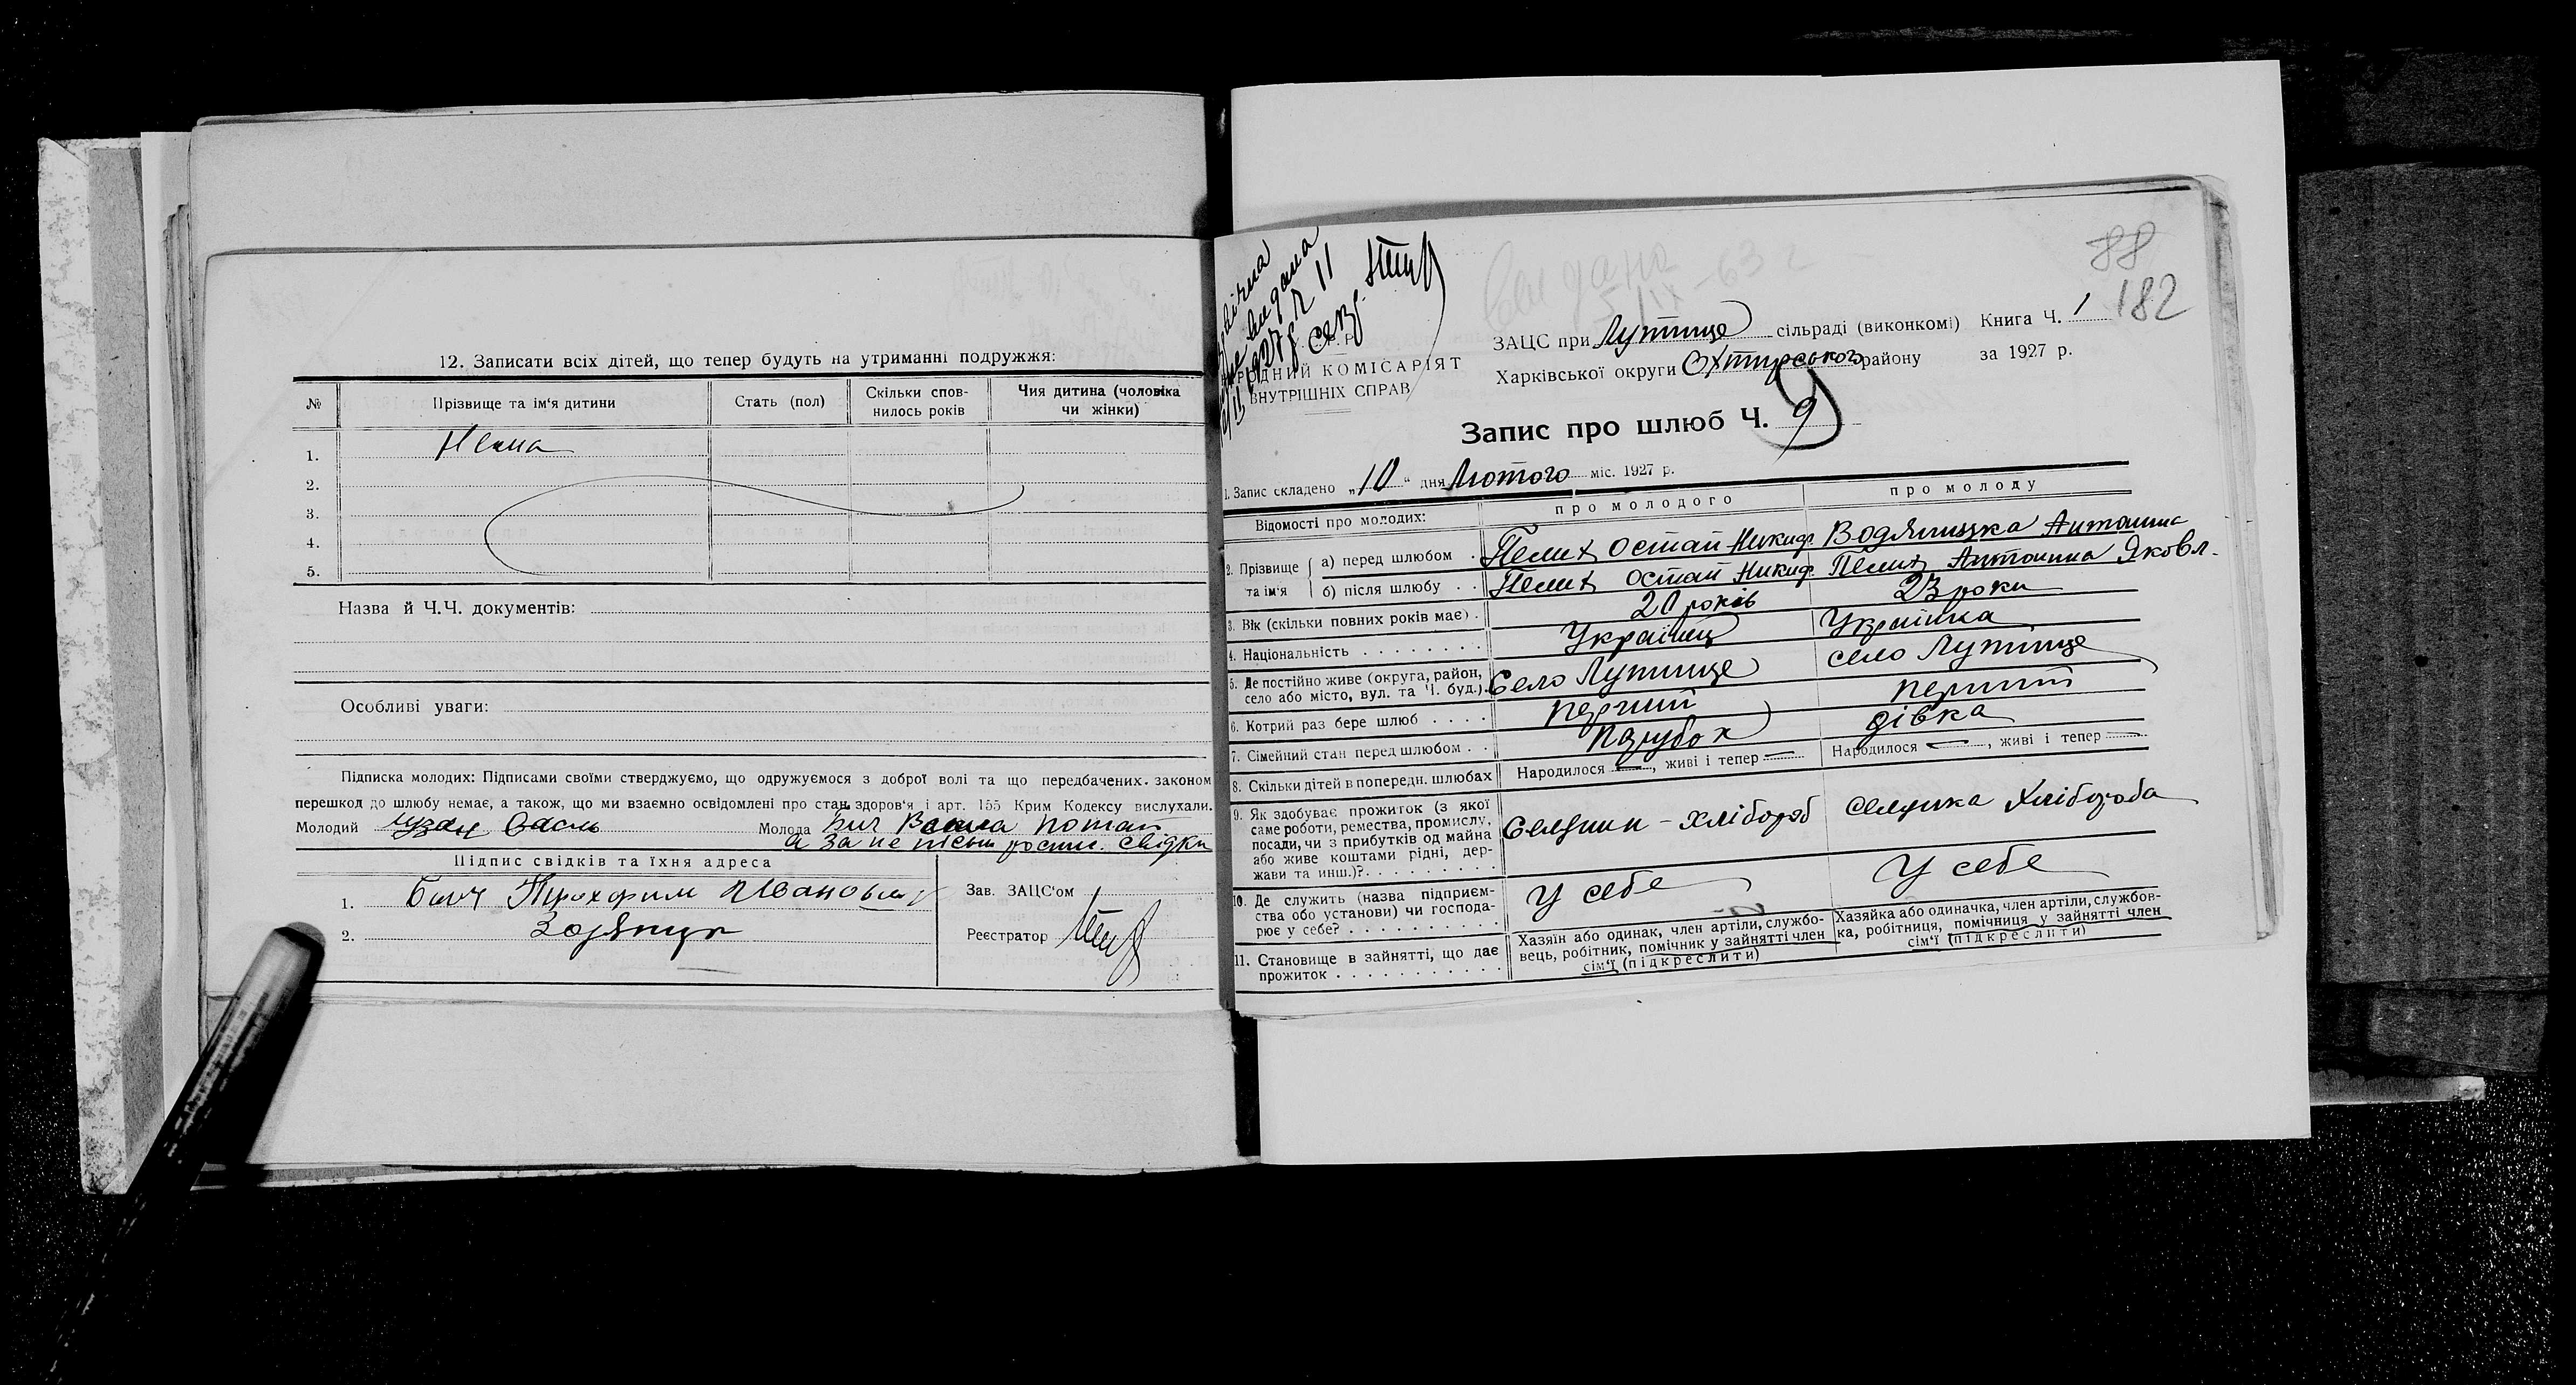 12. Записати всіх дітей, що тепер будуть на утриманні подружжя:
№ Прізвище та ім'я дитини Стать (пол) Скільки спов-нилось років Чия дитина (чоловіка чи жінки)
1. Нема
2.
3.
4.
5.
Назва й Ч.Ч. документів:
Особливі уваги:
Підписка молодих: Підписами своїми стверджуємо, що одружуємося з доброї волі та що передбачених законом
перешкод до шлюбу немає, а також, що ми взаємно освідомлені про стан здоров'я і арт. 155 Крим Кодексу вислухали.
Молодий Молода
а за не письм роспис. свідки
Підпис свідків та їхня адреса
1. Бич Трохфим Иванович
2.
Зав. ЗАЦС'ом
Реєстратор
1927 р. 11
НАРОДНИЙ КОМІСАРІЯТ
ВНУТРІШНІХ СПРАВ
Видано
63 г
88
182
ЗАЦС при Лутище сільраді (виконкомі) Книга Ч. 1
Харківської округи Охтирського району за 1927 р.
Запис про шлюб Ч. 9
1. Запис складено „10" дня Лютого міс. 1927 р.
Відомості про молодих: про молодого про молоду
2. Прізвище та ім'я а) перед шлюбом Пелих Остап Никиф. Водяницка Антонина
б) після шлюбу Пелих Остап Никиф. Пелих Антонина Яковл.
3. Вік (скільки повних років має) 20 років 23 роки
4. Національність Українец Українка
5. Де постійно живе (округа, район, село або місто, вул. та Ч. буд.) Село Лутище село Лутище
6. Котрий раз бере шлюб перший перший
7. Сімейний стан перед шлюбом Парубок дівка
8. Скільки дітей в попередн. шлюбах Народилося —, живі і тепер — Народилося —, живі і тепер —
9. Як здобуває прожиток (з якої
саме роботи, ремества, промислу,
посади, чи з прибутків од майна
або живе коштами рідні, дер-
жави та инш.)? Селянин - хлібороб Селянка хлібороба
10. Де служить (назва підприєм-
ства обо установи) чи господа-
рює у себе? У себе У себе
11. Становище в зайнятті, що дає
прожиток
Хазяїн або одинак, член артіли, службо-
вець, робітник, помічник у зайнятті член
сім'ї (підкреслити)
Хазяйка або одиначка, член артіли, службов-
ка, робітниця, помічниця у зайнятті член
сім'ї (підкреслити)